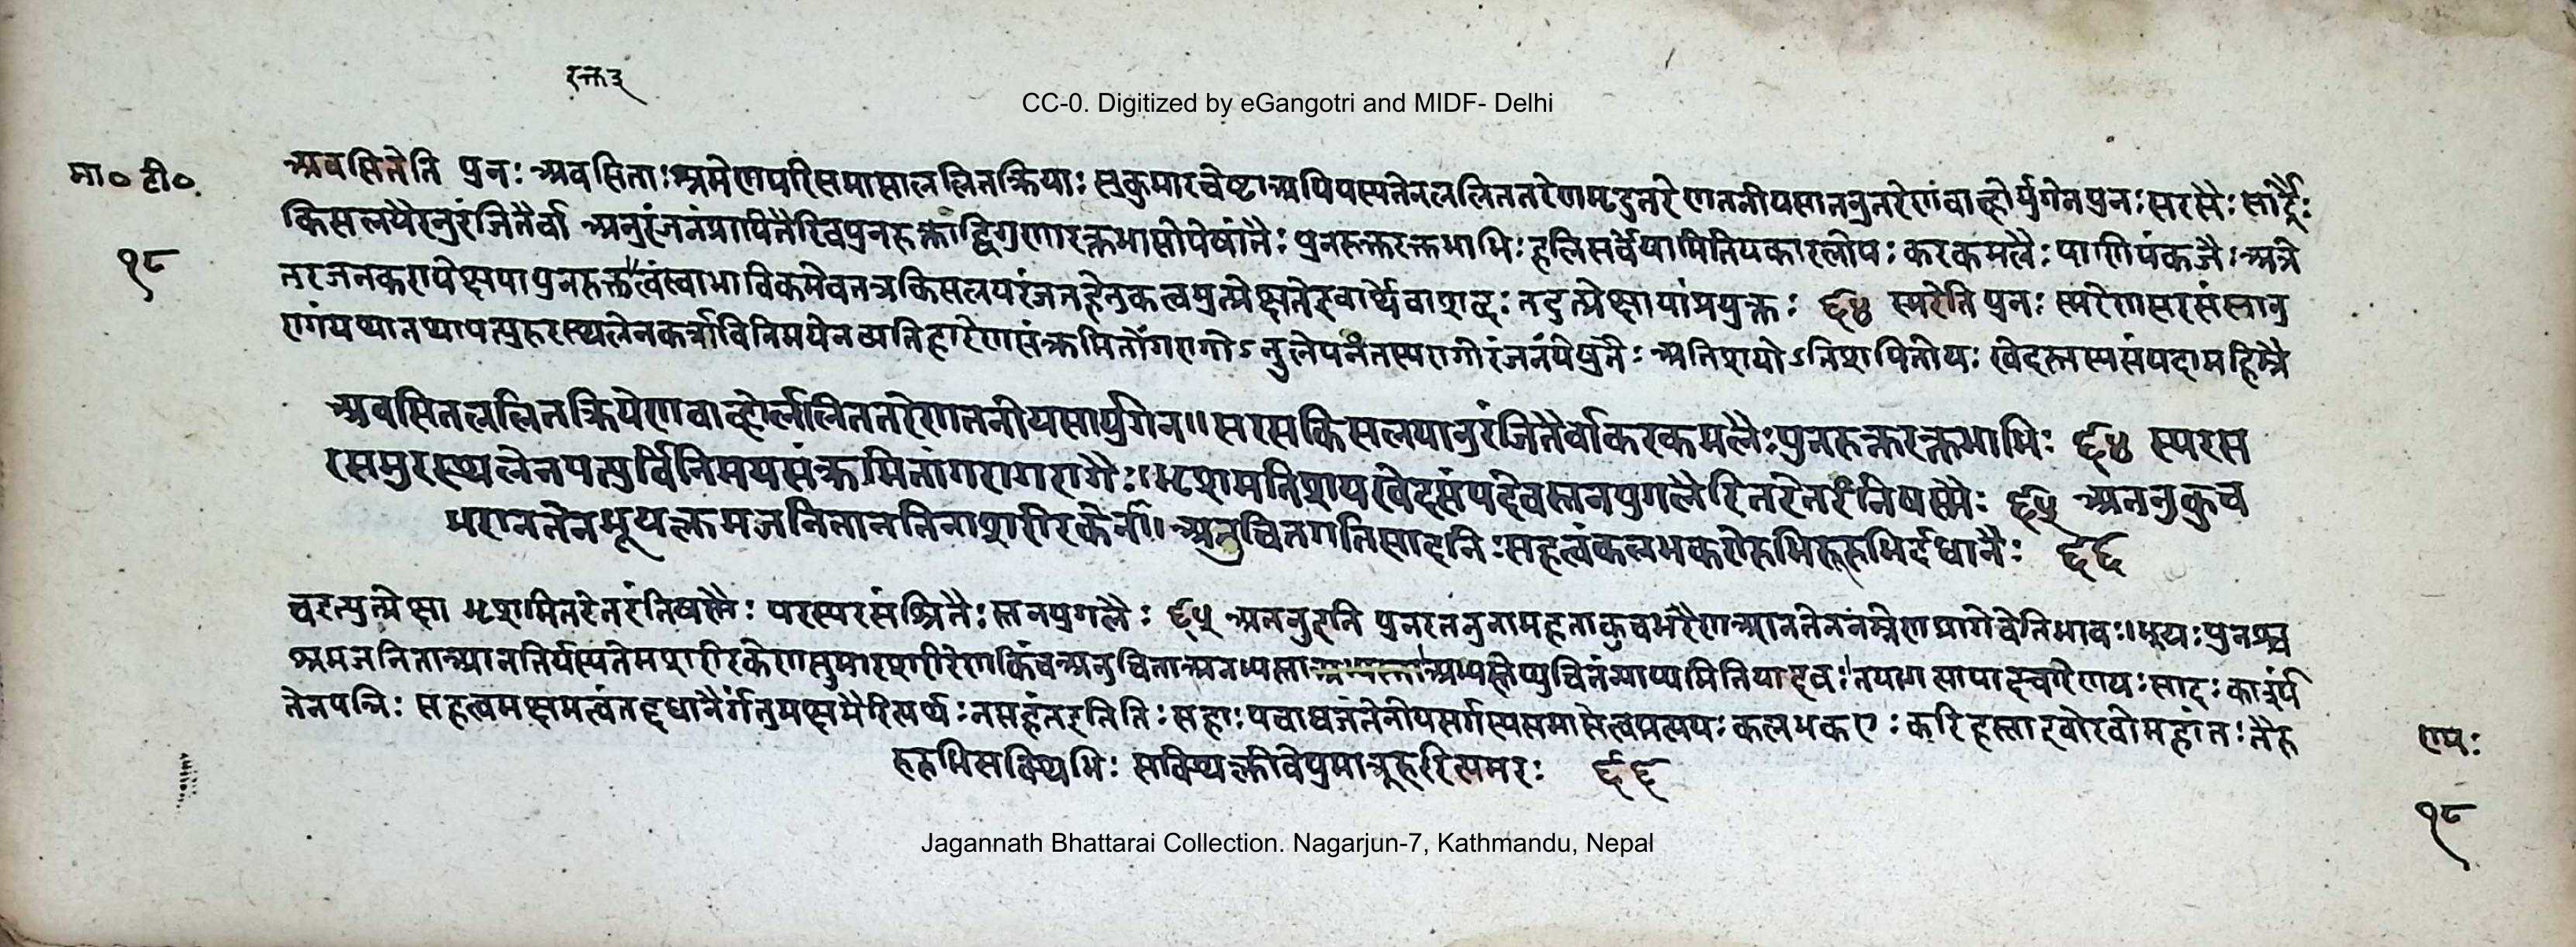 रक्त ३
CC-0. Digitized by eGangotri and MIDF- Delhi
मा० टी०
अवसितेति पुनः अवसिताः श्रमेणपरिसमाप्ताललितक्रियाः सुकुमारचेष्टाअपियस्यतेनललिततरेणमृदुतरेणतनीयसातनुतरेणवाव्होर्युगेनपुनः सरसैः सार्द्रैः
किसलयैरनुरंजितैर्वा अनुरंजनंप्रापितैरिवपुनरुक्ताद्विगुणारक्तभासोयेषांतैः पुनरुक्तरक्तभाभिः हलिसर्वेषामितियकारलोपः करकमलैः पाणिपंकजैः अत्रे
१८
तरजनकरापेक्षयापुनरुक्तत्वंस्वाभाविकमेवतत्रकिसलयरंजनहेतुकत्वमुत्प्रेक्षतेइवार्थेवाशब्दः तदुत्प्रेक्षायांप्रयुक्तः ६४ स्मरेति पुनः स्मरेणसरसंसानु
रागंयथातथापत्युरुरस्थलेनकर्त्राविनिमयेनव्यतिहारेणसंक्रमितोंगरागोऽनुलेपनंतस्यरागोरंजनंयेषुतैः अतिशयोऽतिशयितोयः खेदस्तस्यसंपदामहिम्नै
अवसितललितक्रियेणवाव्होर्ललिततरेणतनीयसायुगेन॥ सरसकिसलयानुरंजितैर्वाकरकमलैः पुनरुक्तरक्तभाभिः ६४ स्मरस
रसमुरस्थलेनपत्युर्विनिमयसंक्रमितांगरागरागैः॥ भृशमतिशयखेदसंपदेवस्तनयुगलैरितरेतरंनिषस्मैः ६५ अतनुकुच
भरानतेनभूयःक्लमजनितानतिनाशरीरकेर्ना॥ अनुचितगतिसादनिः सहत्वंकलभकरोरुभिरूरुभिर्दधानैः ६६
वेत्युत्प्रेक्षा भृशमितरेतरंनिषस्मैः परस्परसंश्रितैः स्तनयुगलैः ६५ अतनुइति पुनरतनुनामहताकुचभरेणआनतेननम्रेणप्रागेवेतिभावः॥ भूयः पुनश्च
श्रमजनिताआनतिर्यस्यतेनशरीरकेणसुकुमारशरीरेणकिंचअनुचिताअनभ्यस्ताअभ्यस्तेप्युचितंन्याय्यमितियादवः तयागत्यापादचारेणयः सादः कार्श्यं
तेनयन्निः सहत्वमक्षमत्वंतद्दधानैर्गंतुमक्षमैरित्यर्थः नसहंतइतिनिः सहाः पचाद्यजंतेनोपसर्गस्यसमासेत्वप्रत्ययः कलभकराः करिहस्ताइवोरवोमहांतः तैरु
रुरुभिसक्थिभिः सक्थिक्लीबेपुमानूरुरित्यमरः ६६
रामः
१८
Jagannath Bhattarai Collection. Nagarjun-7, Kathmandu, Nepal